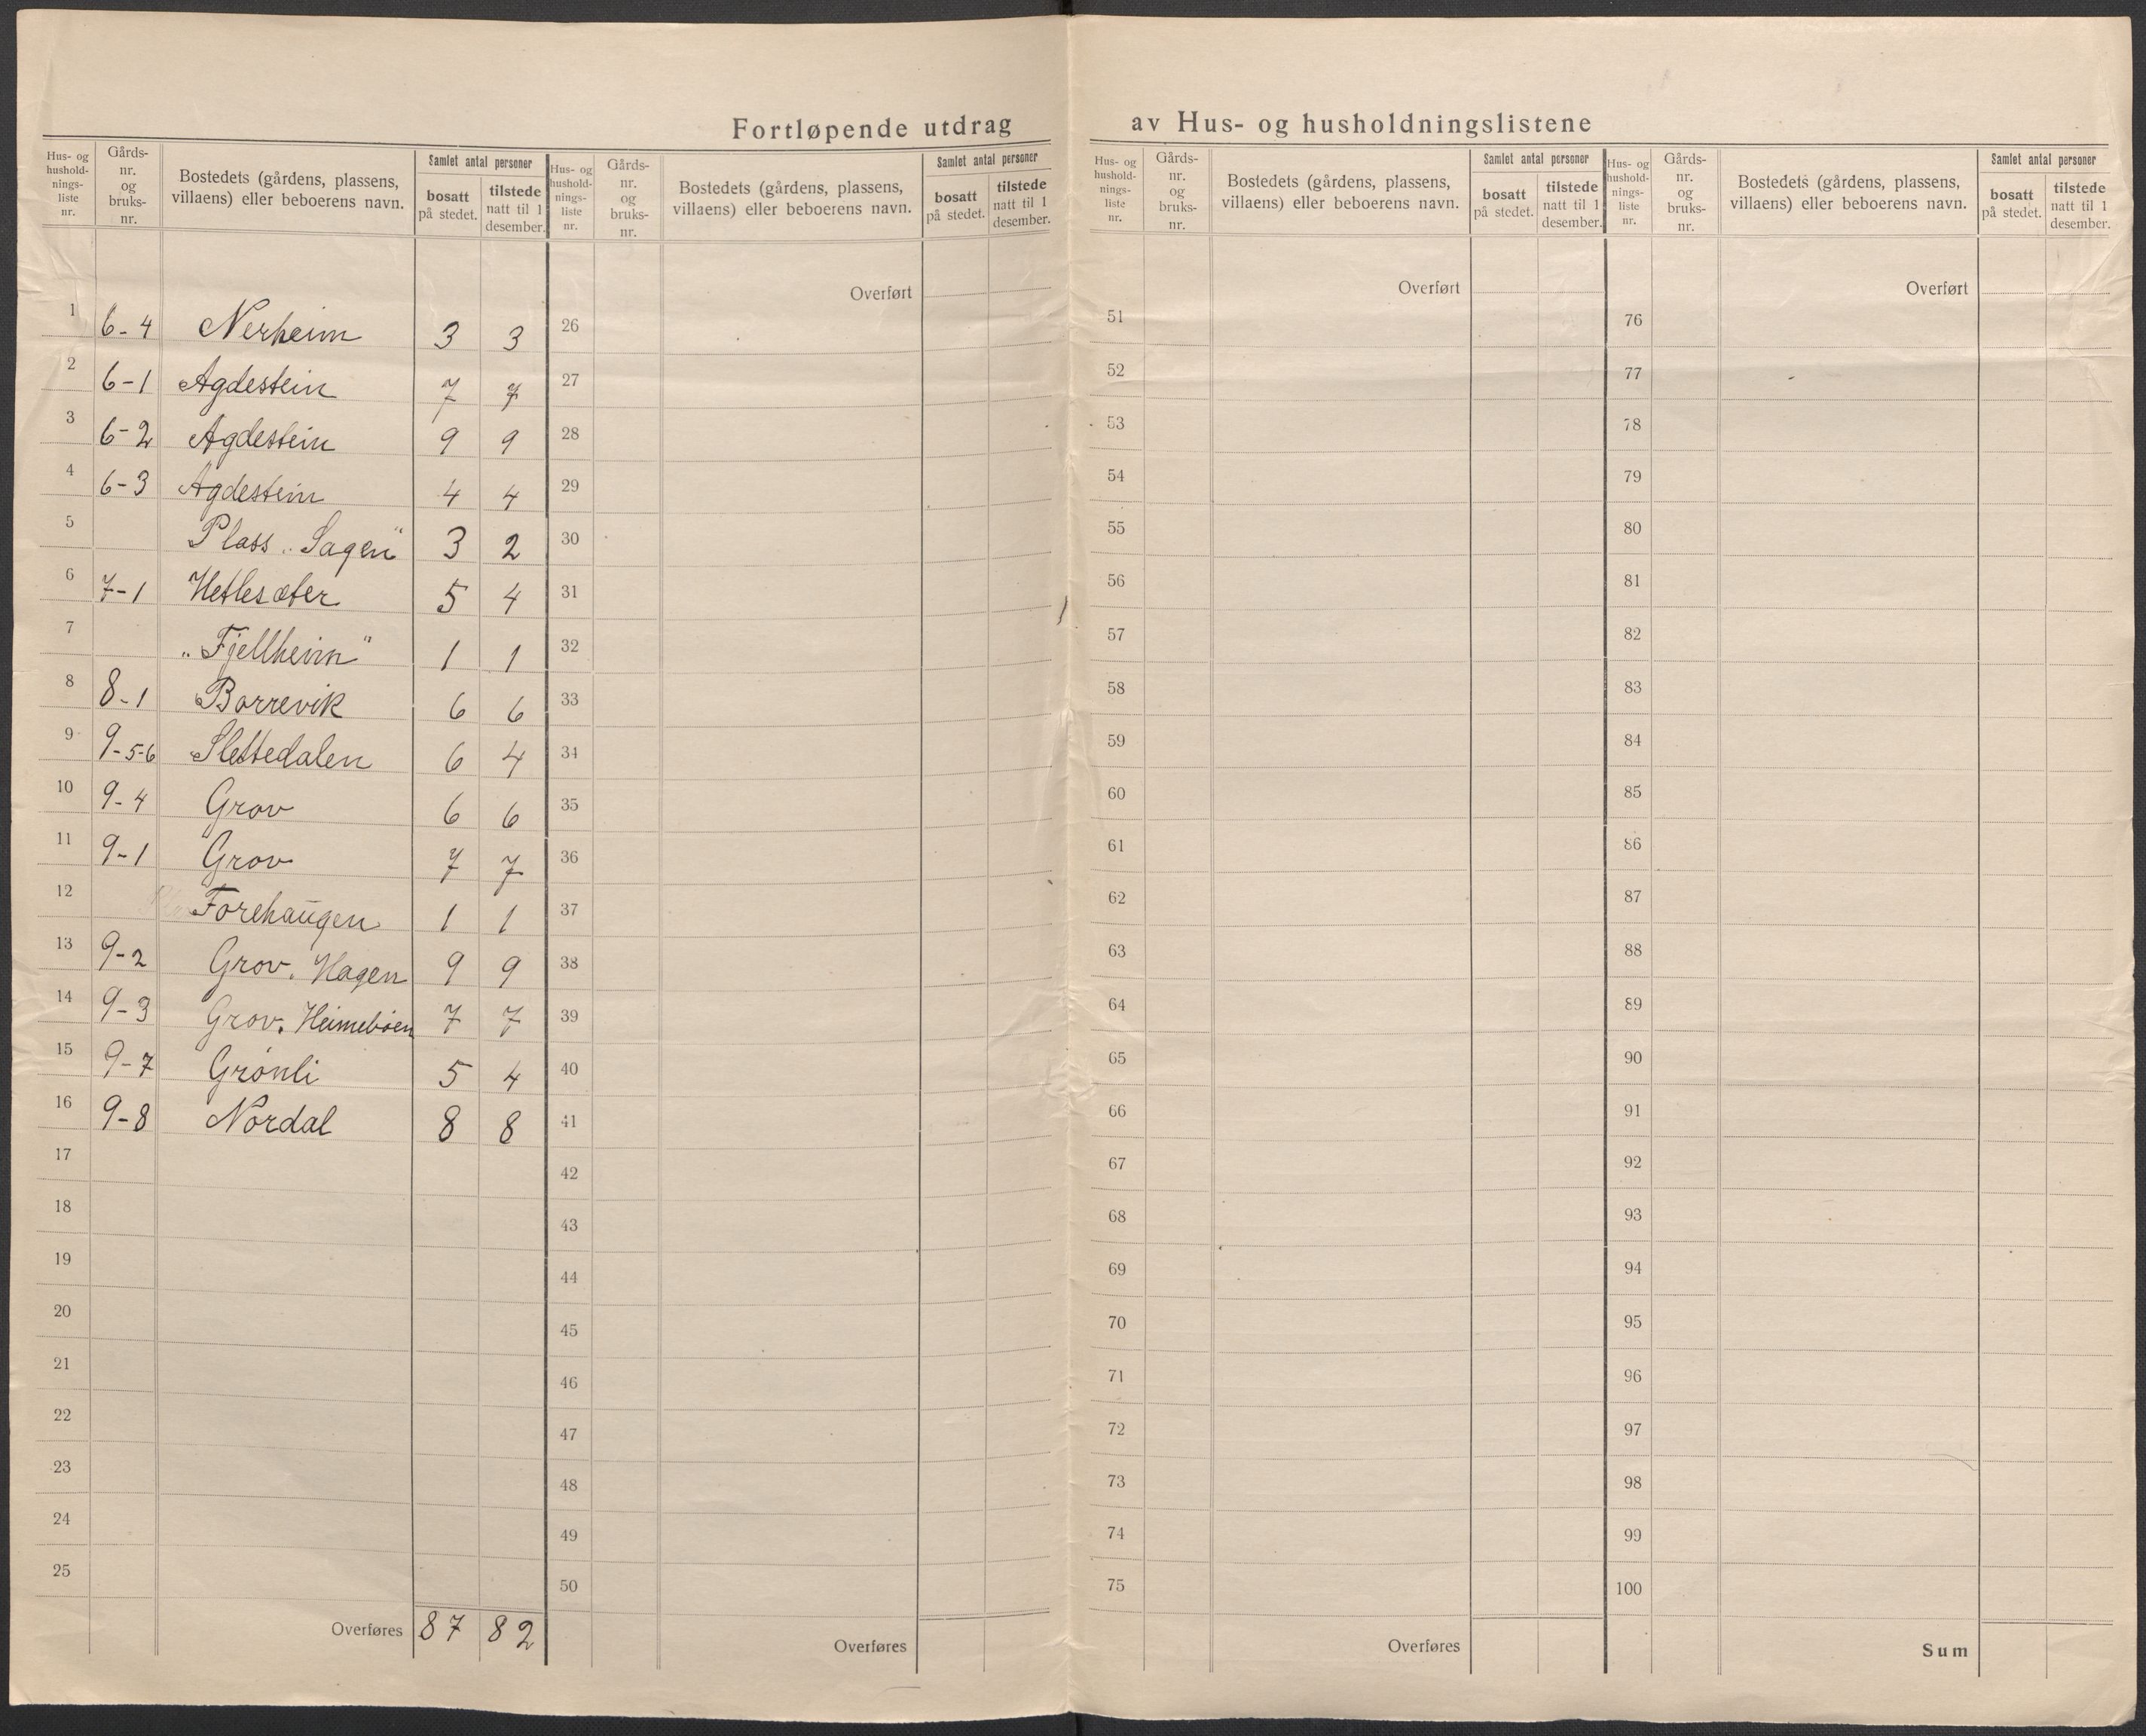 Fortløpende utdrag av Hus- og husholdningslistene
Hus- og hushold- nings- liste nr. | Gårds- nr. og bruks- nr. | Bostedets (gårdens, plassens, villaens) eller beboerens navn. | Samlet antal personer | bosatt på stedet. | tilstede natt til 1 desember.
1 6-4 Nerheim 3 3
2 6-1 Agdestein 7 7
3 6-2 Agdestein 9 9
4 6-3 Agdestein 4 4
5 Plass „Sagen" 3 2
6 7-1 Hetlesæter 5 4
7 „Fjellheim" 1 1
8 8-1 Borrevik 6 6
9 9-5-6 Slettedalen 6 4
10 9-4 Grov 6 6
11 9-1 Grov 7 7
12 Forehaugen 1 1
13 9-2 Grov. Hagen 9 9
14 9-3 Grov. Heimebøen 7 7
15 9-7 Grønli 5 4
16 9-8 Nordal 8 8
17
18
19
20
21
22
23
24
25
Overføres 87 82
Hus- og hushold- nings- liste nr. | Gårds- nr. og bruks- nr. | Bostedets (gårdens, plassens, villaens) eller beboerens navn. | Samlet antal personer | bosatt på stedet. | tilstede natt til 1 desember.
Overført
26
27
28
29
30
31
32
33
34
35
36
37
38
39
40
41
42
43
44
45
46
47
48
49
50
Overføres
Hus- og hushold- nings- liste nr. | Gårds- nr. og bruks- nr. | Bostedets (gårdens, plassens, villaens) eller beboerens navn. | Samlet antal personer | bosatt på stedet. | tilstede natt til 1 desember.
Overført
51
52
53
54
55
56
57
58
59
60
61
62
63
64
65
66
67
68
69
70
71
72
73
74
75
Overføres
Hus- og hushold- nings- liste nr. | Gårds- nr. og bruks- nr. | Bostedets (gårdens, plassens, villaens) eller beboerens navn. | Samlet antal personer | bosatt på stedet. | tilstede natt til 1 desember.
Overført
76
77
78
79
80
81
82
83
84
85
86
87
88
89
90
91
92
93
94
95
96
97
98
99
100
Sum